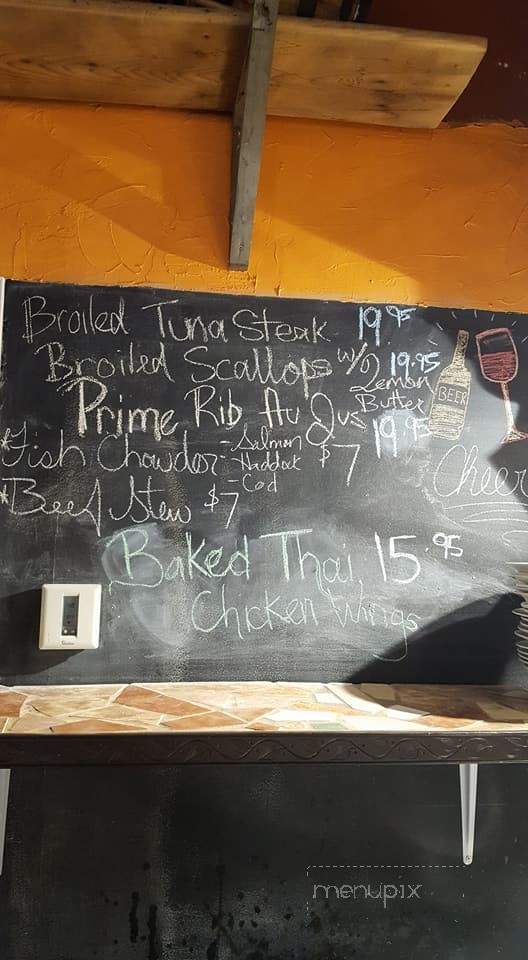 Broiled Tuna Steak 19.95
Broiled Scallops w/ Lemon Butter 19.95
Prime Rib Au Jus 19.95
*Fish Chowdor - Salmon - Haddock - Cod $7
*Beef Stew $7
Baked Thai 15.95
Chicken Wings
BEER
Cheer
menupix